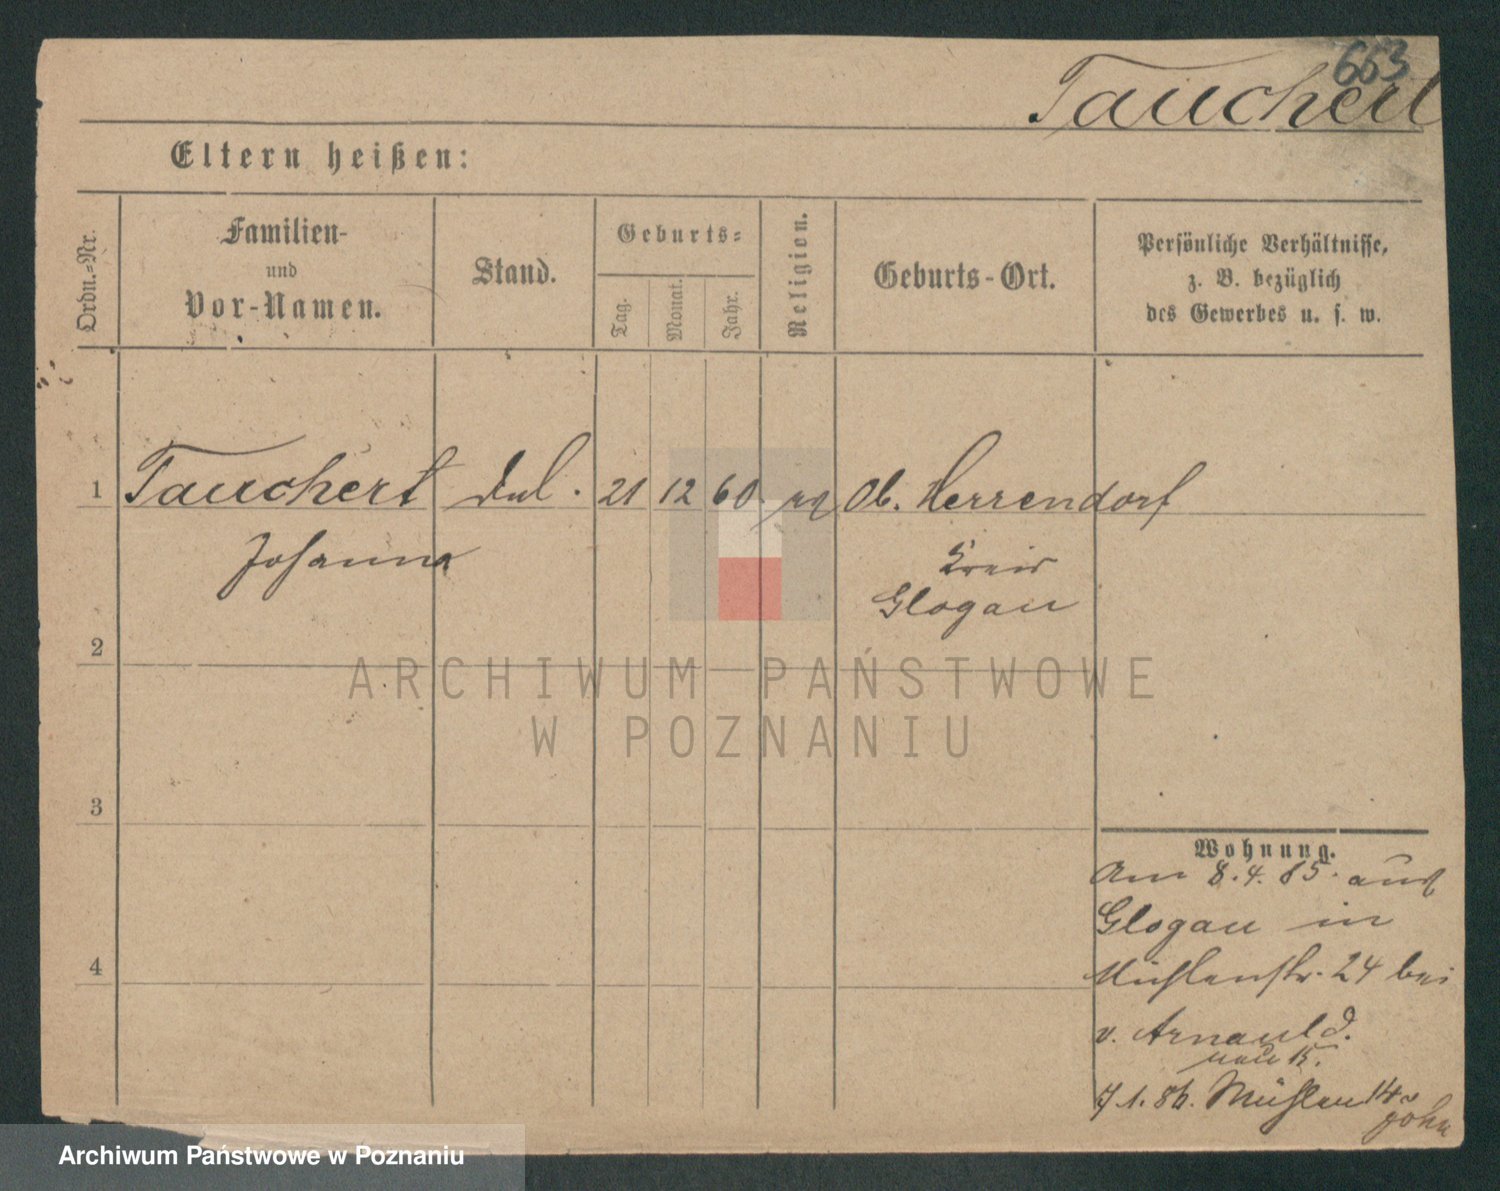 663
Tauchert
Eltern heißen:
Ordn.-Nr.
Familien-
und
Vor-Namen.
Stand.
Geburts-
Tag.
Monat.
Jahr.
Religion.
Geburts-Ort.
Persönliche Verhältnisse,
z. B. bezüglich
des Gewerbes u. s. w.
1 Tauchert 21 12 60 Ob. Herrendorf
Johanna Kreis
Glogau
2
3
4
Wohnung.
Am 8.4.85. aus
Glogau in
Mühlenstr. 24 bei
v. Arnauld.
neu 15.
7 1. 86. Mühlen 14
John
ARCHIWUM PAŃSTWOWE
W POZNANIU
Archiwum Państwowe w Poznaniu